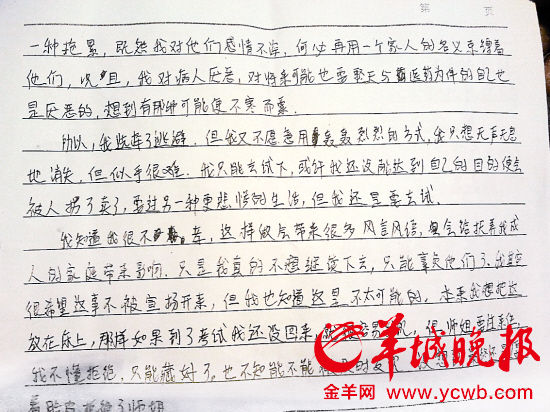 第 页
一种拖累，既然我对他们感情不深，何必再用一个家人的名义来缠着
他们，况且，我对病人厌恶，对将来可能也要整天与医药为伴的自己也
是厌恶的，想到有那种可能便不寒而栗。
所以，我选择了逃避，但我又不愿意用轰轰烈烈的方式，我只想无声无息
地消失，但似乎很难。我只能去试下，或许我还没能达到自己的目的便会
被人拐了卖了，要过另一种更悲惨的生活，但我还是要去试。
我知道我很不孝，这样做会带来很多风言风语，会给抚养我成
人的家庭带来影响，只是我真的不想继续下去，只能辜负他们了。我
很希望这事不被宣扬开来，但我也知道这是不太可能的，本来我想把这
放在床上，那样如果到了考试我还没回来，
我不懂拒绝，只能藏好了，也不知能不能
羊城晚报
金羊网 www.ycwb.com